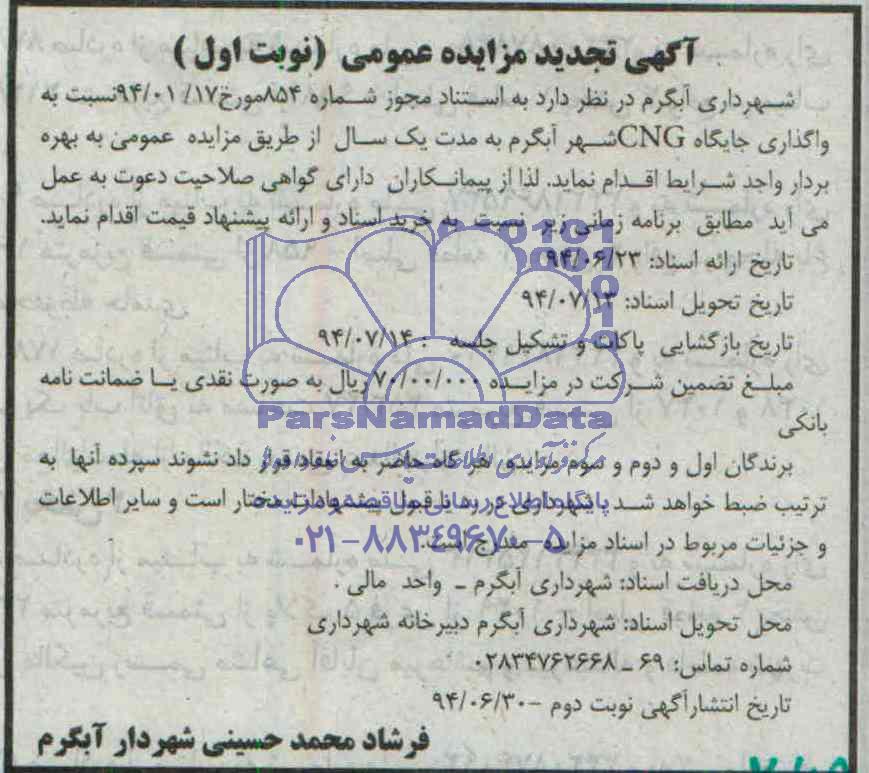 آگهی تجدید مزایده عمومی (نوبت اول)
شهرداری آبگرم در نظر دارد به استناد مجوز شماره ۸۵۴مورخ۹۴/۰۱/۱۷نسبت به
واگذاری جایگاه CNGشهر آبگرم به مدت یک سال از طریق مزایده عمومی به بهره
بردار واجد شرایط اقدام نماید. لذا از پیمانکاران دارای گواهی صلاحیت دعوت به عمل
می آید مطابق برنامه زمانی زیر نسبت به خرید اسناد و ارائه پیشنهاد قیمت اقدام نماید.
تاریخ ارائه اسناد: ۹۴/۰۶/۲۳
تاریخ تحویل اسناد: ۹۴/۰۷/۱۳
تاریخ بازگشایی پاکات و تشکیل جلسه : ۹۴/۰۷/۱۴
مبلغ تضمین شرکت در مزایده ۷۰/۰۰/۰۰۰ ریال به صورت نقدی یا ضمانت نامه
بانکی
ParsNamadData
برندگان اول و دوم و سوم مزایده هر گاه حاضر به انعقاد قرار داد نشوند سپرده آنها به
ترتیب ضبط خواهد شد شهرداری در رد یا قبول پیشنهادات مختار است و سایر اطلاعات
و جزئیات مربوط در اسناد مزایده مندرج است.
۰۲۱-۸۸۳۴۹۶۷۰-۵
محل دریافت اسناد: شهرداری آبگرم - واحد مالی .
محل تحویل اسناد: شهرداری آبگرم دبیرخانه شهرداری
شماره تماس: ۶۹ - ۰۲۸۳۴۷۶۲۶۶۸
تاریخ انتشارآگهی نوبت دوم -۹۴/۰۶/۳۰
فرشاد محمد حسینی شهردار آبگرم